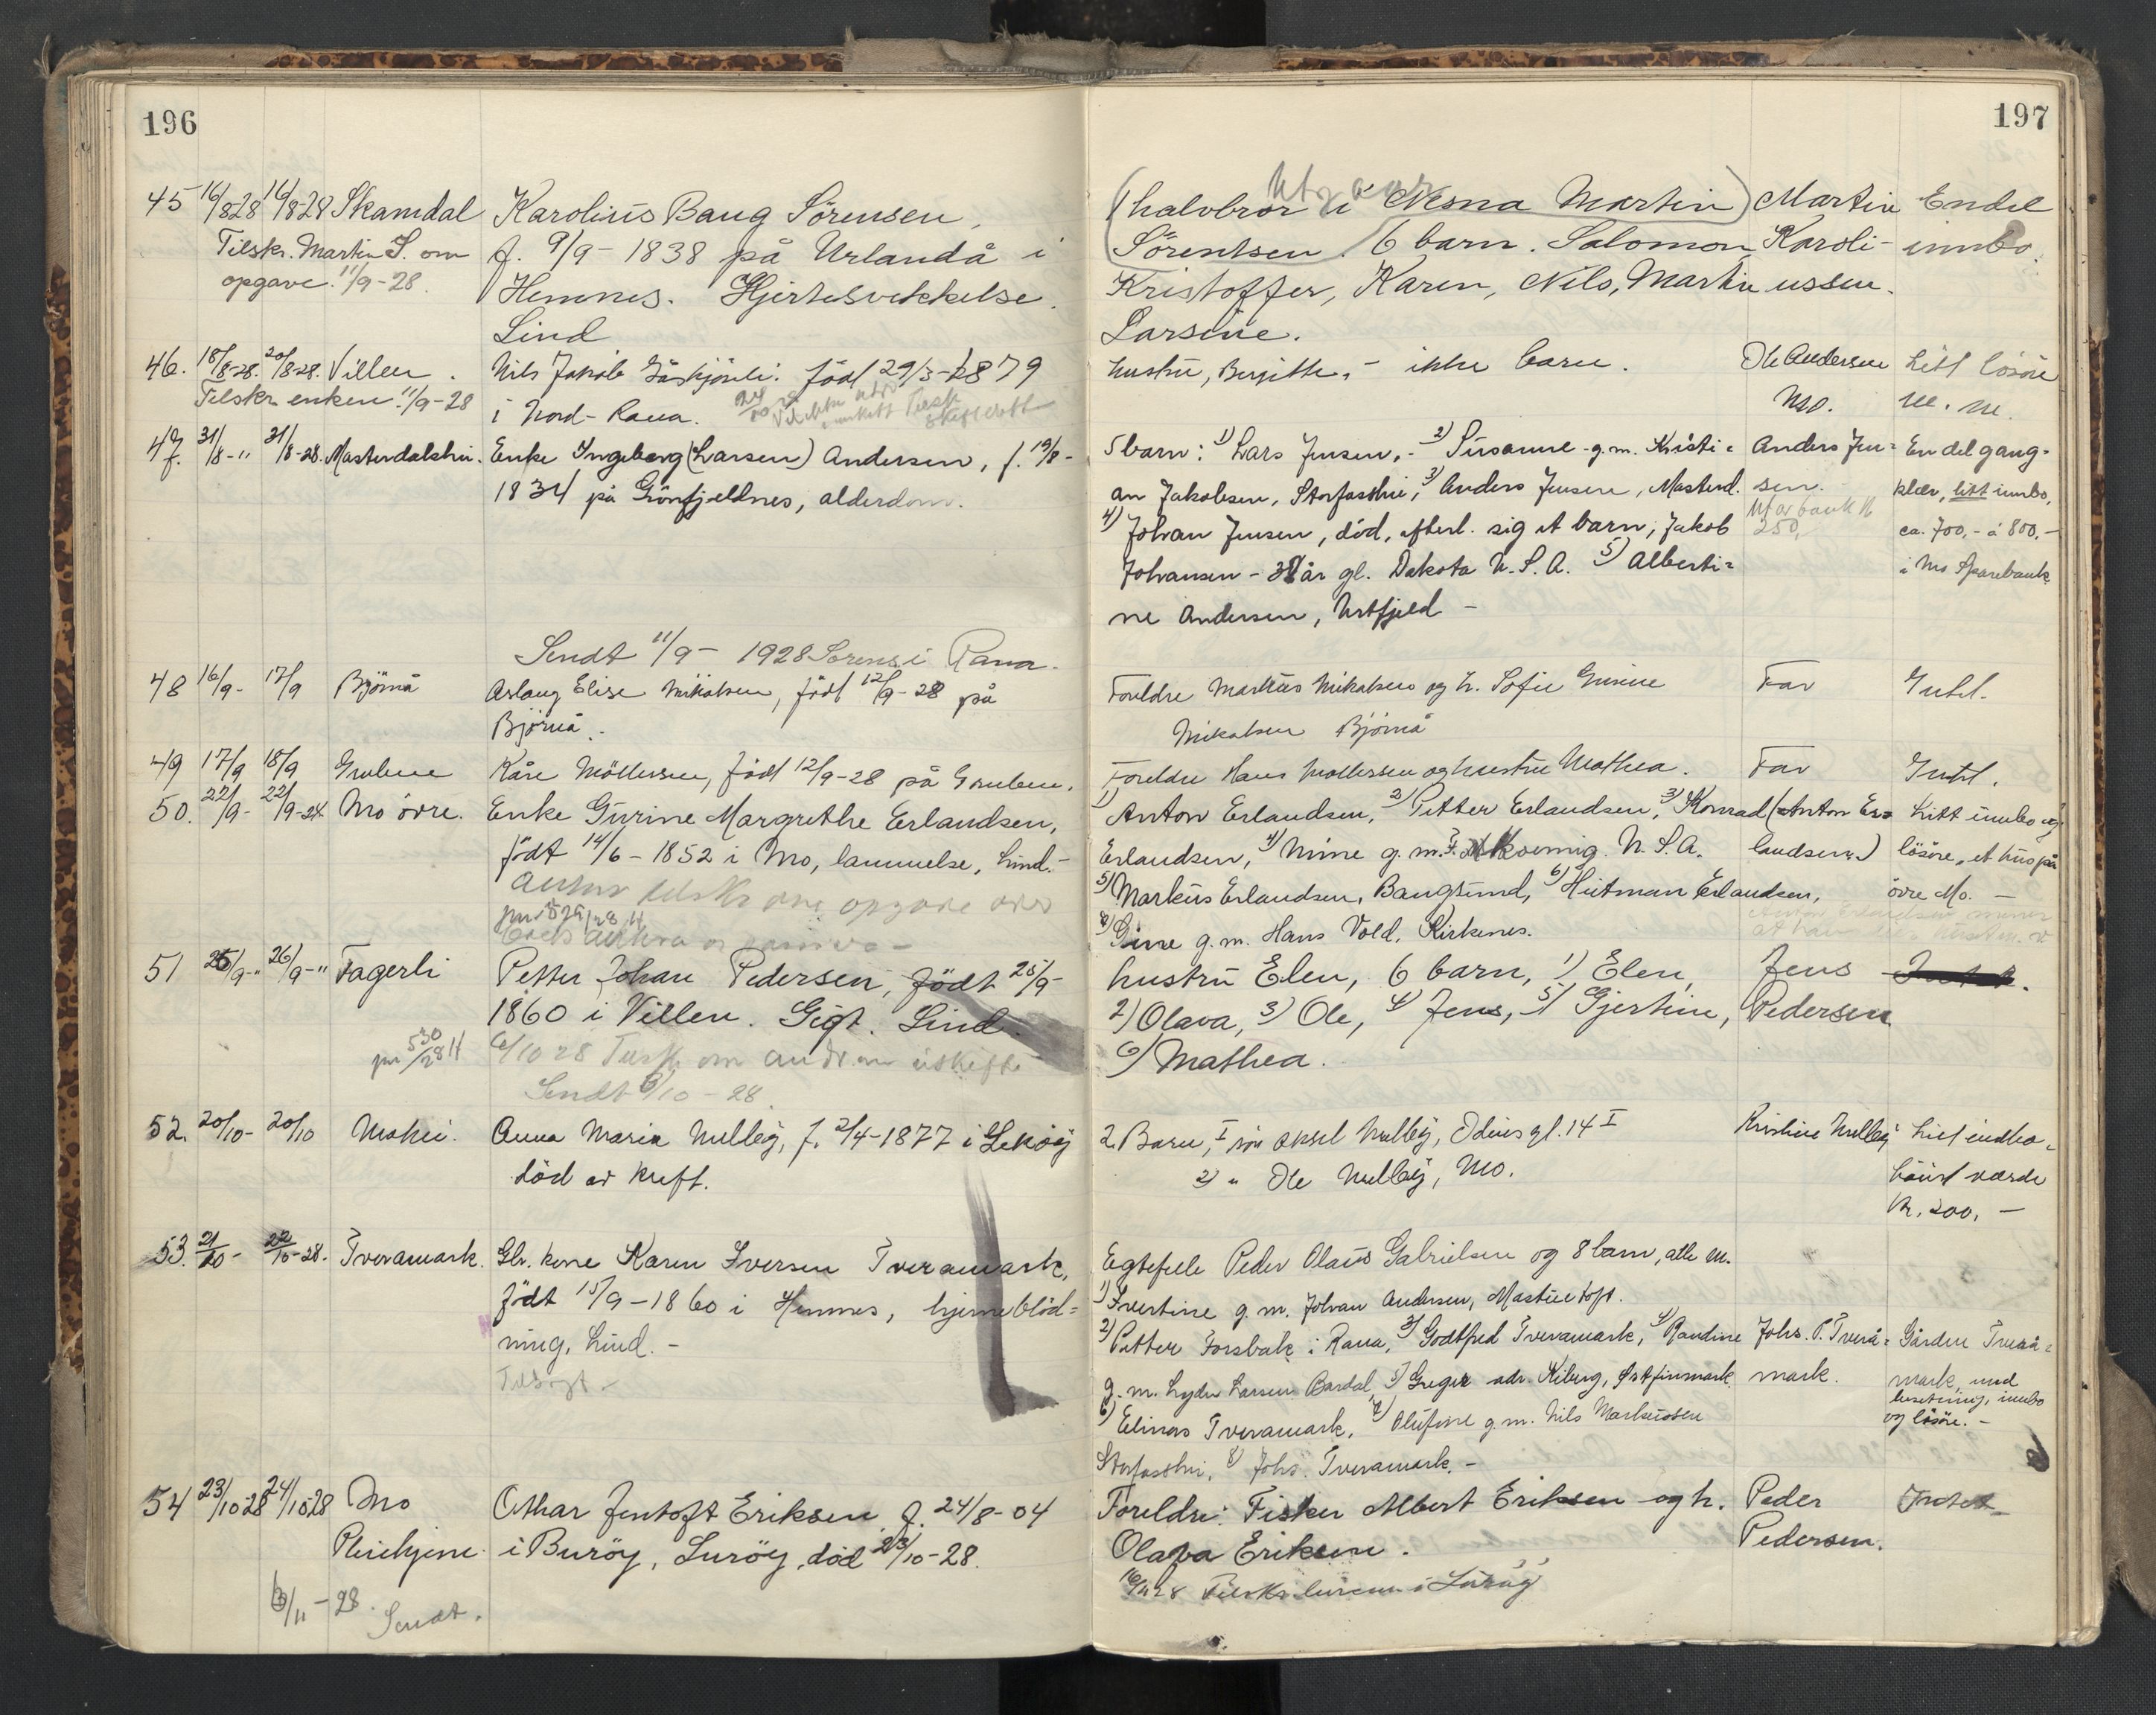 196
45 16/8 28 16/8-28 Skamdal Karolius Baug Sörensen,
Tilskr. Martin S. om f. 9/9 - 1838 på Urlandå i
opgave. 11/9-28. Hemnes. Hjertesvekkelse.
Lind
46. 18/8-28. 20/8-28. Villen. Nils Jakob födt 29/3-1879
Tilskr. enken. 11/9-28 i Nord-Rana.
47. 31/8-" 31/8-28. Masterdalshei. Enke Ingeborg (Larsen) Andersen, f. 19/8-
1834 på Grönfjeldnes, alderdom.
Sendt 11/9 - 1928 Sorensi Rana.
48 16/9- 17/9 Bjørnå Aslaug Elise Mikalsen, født 12/9-28 på
Bjørnå.
49 17/9 18/9 Grubene Kåre Möllersen, født 12/9-28 på Gruben.
50. 22/9- 22/9-28 Mo övre. Enke Gurine Margrethe Erlandsen,
født 14/6 - 1852 i Mo, lammelse, Lind. -
Anton tilskr om opgave over
51 25/9-" 26/9-" Fagerli Petter Johan Pedersen, födt 25/9-
1860 i Villen. Gigt. Lind.
jnr 530/28 H 6/10 28 Tilsk. om
Sendt 6/10 - 28
52. 20/10- 20/10 Mohei. Anna Maria Nulløy, f. 2/4-1877 i Lekøy
död av kreft.
53. 21/10- 22/10-28. Tveramark. Gbr. kone Karen Iversen Tveramark,
født 15/9 - 1860 i Hemnes, hjerneblöd=
ning, Lind. -
54 23/10 28 24/10 28 Mo Othar Jentoft Eriksen f. 24/8-04
Pleiehjem. i Buröy, Luröy, död 23/10-28.
3/11 - 28. Sendt.
197
(halvbror i Nesna Martin) Martin Endel
Sörentsen. 6 barn. Salomon Karoli- innbo.
Kristoffer, Karen, Nils, Martin ussen.
Larsine.
hustru, Bergitte, - ikke barn. Ole Andersen Litt lösöre
Mo. m. m.
5 barn: 1) Lars Jensen, - 2) Susanne - g.m. Kristi= Anders Jen= En del gang-
an Jakobsen, Storfosshei, 3) Anders Jensen, Masterd. sen. - klær, litt innbo,
4) Johan Jensen, död, efterl. sig et barn, Jakob 250, ca. 700,- à 800,-
Johansen - 38 år gl. Dakota U.S.A. 5) Alberti= i Mo Sparebank
ne Andersen, Urtfjeld -
Foreldre Markus Mikalsen og h. Sofie Gurine Far Intet.
Mikalsen Bjørnå
Foreldre Hans Möllersen og hustru Mathea. Far Intet.
1) Anton Erlandsen, 2) Petter Erlandsen, 3) Konrad (Anton Er= Litt innbo og
Erlandsen, 4) Mine g.m. F. U.S.A. landsen) lösöre, et hus på
5) Markus Erlandsen, Bangsund, 6) Hilman Erlandsen, övre Mo. -
7) Gine g.m. Hans Vold, Kirkenes.
hustru Elen, 6 barn, 1) Elen, Jens Intet.
2) Olava, 3) Ole, 4) Jens, 5) Gjertine, Pedersen
6) Mathea.
2. Barn, I sön Aksel Nulløy, Odins gl. 14 I Kristine Nulløy Litt indbo,
2) " Ole Nulløy, Mo. höist værdi
Kr. 200, -
Egtefelle Peder Olaus Gabrielsen og 8 barn, alle m.
1) Ivertine g.m. Johan Andersen, Mastuetoft.
2) Petter Forsbak i Rana, 3) Godtfred Tveramark, 4) Randine Johs. P. Tverå= Gården Tverå=
g.m. Lyder Larsen Bardal, 5) Greger adr. Kiberg, Østfinmark mark. mark, med
6) Elinor Tveramark, 7) Olufine g.m. Nils Markussen besetning, innbo
og lösöre. -
Storfosshei, 8) Johs. Tveramark. -
Foreldre: Fisker Albert Eriksen og h. Peder Intet
Olava Eriksen. Pedersen.
16/11 28 Tilskr. lensm. i Luröy